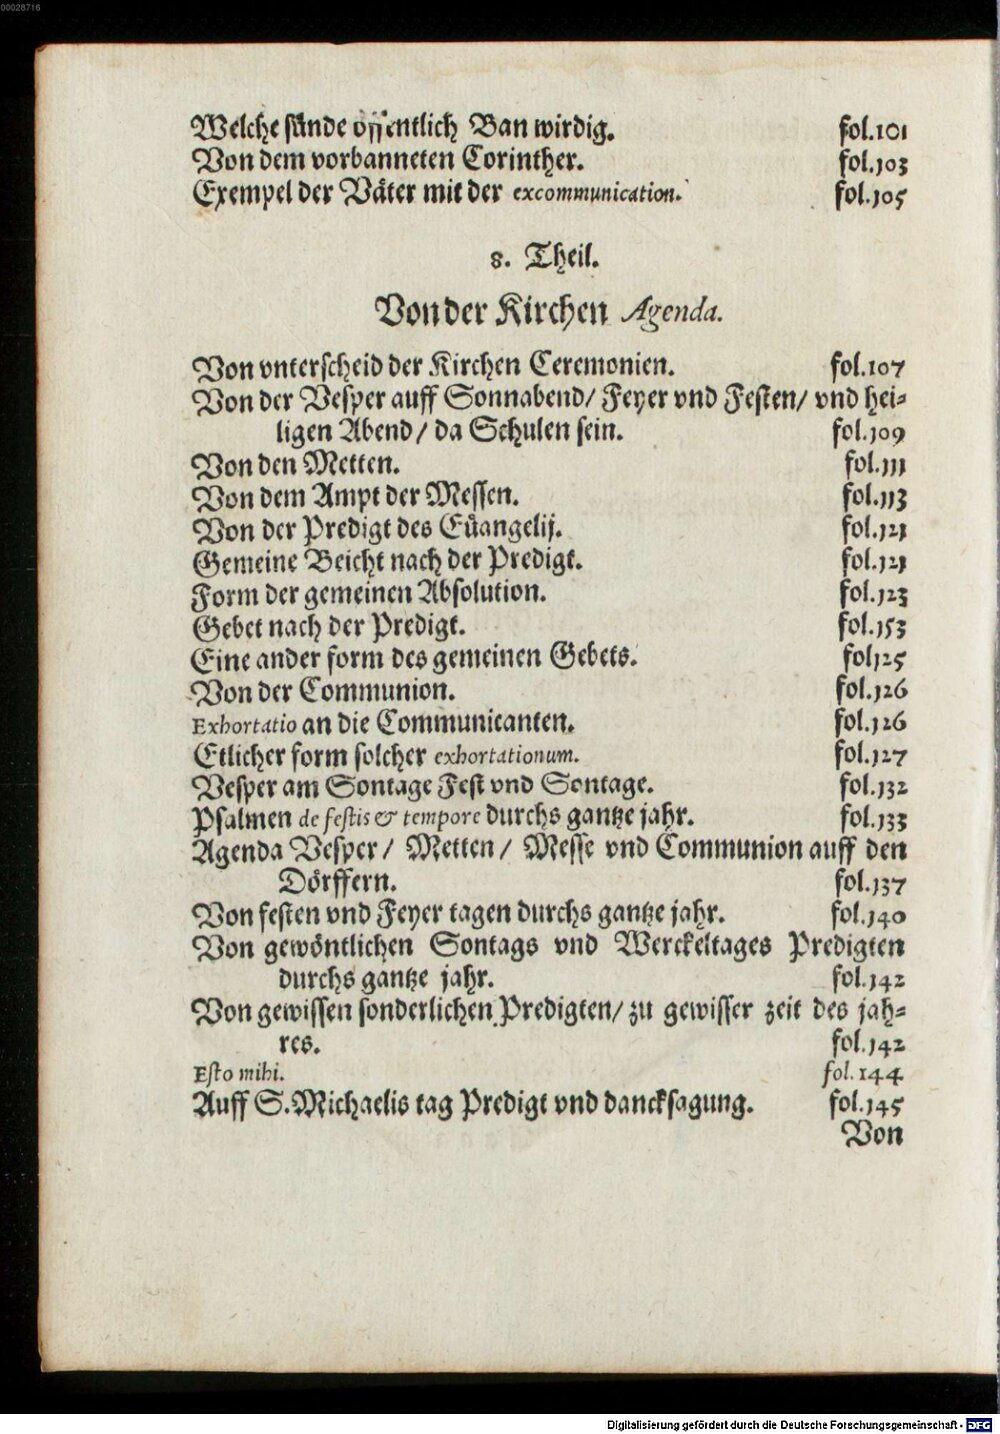 00028716
Welche sünde öffentlich Ban wirdig. fol.101
Von dem vorbanneten Corinther. fol.103
Exempel der Väter mit der excommunication. fol.105
8. Theil.
Von der Kirchen Agenda.
Von vnterscheid der Kirchen Ceremonien. fol.107
Von der Vesper auff Sonnabend/ Feyer vnd Festen/ vnd hei-
ligen Abend/ da Schulen sein. fol.109
Von den Metten. fol.111
Von dem Ampt der Messen. fol.113
Von der Predigt des Euangelij. fol.121
Gemeine Beicht nach der Predigt. fol.121
Form der gemeinen Absolution. fol.123
Gebet nach der Predigt. fol.153
Eine ander form des gemeinen Gebets. fol125
Von der Communion. fol.126
Exhortatio an die Communicanten. fol.126
Etlicher form solcher exhortationum. fol.127
Vesper am Sontage Fest vnd Sontage. fol.132
Psalmen de festis & tempore durchs gantze jahr. fol.133
Agenda Vesper/ Metten/ Messe vnd Communion auff den
Dörffern. fol.137
Von festen vnd Feyer tagen durchs gantze jahr. fol.140
Von gewöntlichen Sontags vnd Werckeltages Predigten
durchs gantze jahr. fol.142
Von gewissen sonderlichen Predigten/ zu gewisser zeit des jah-
res. fol.142
Esto mihi. fol.144
Auff S.Michaelis tag Predigt vnd dancksagung. fol.145
Von
Digitalisierung gefördert durch die Deutsche Forschungsgemeinschaft - DFG